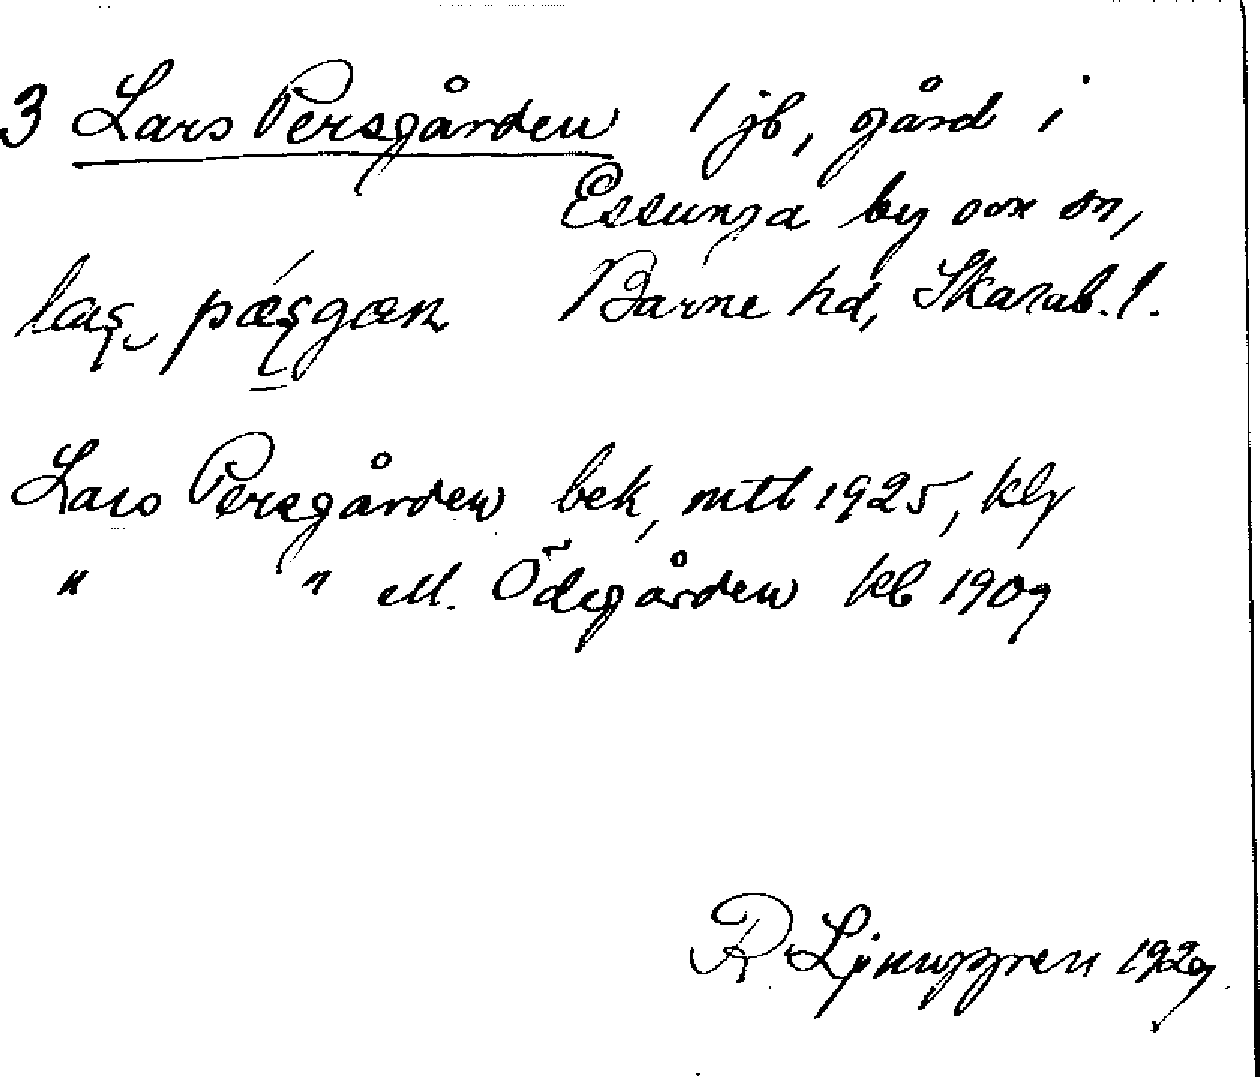 3 Lars Persgården 1 jb, gård i
Essunga by och sn,
Barne hd, Skarab. l.
Lars Persgården bek, mtl 1925, klg
" " M. Ödegården kb 1909
R Ljunggren 1929